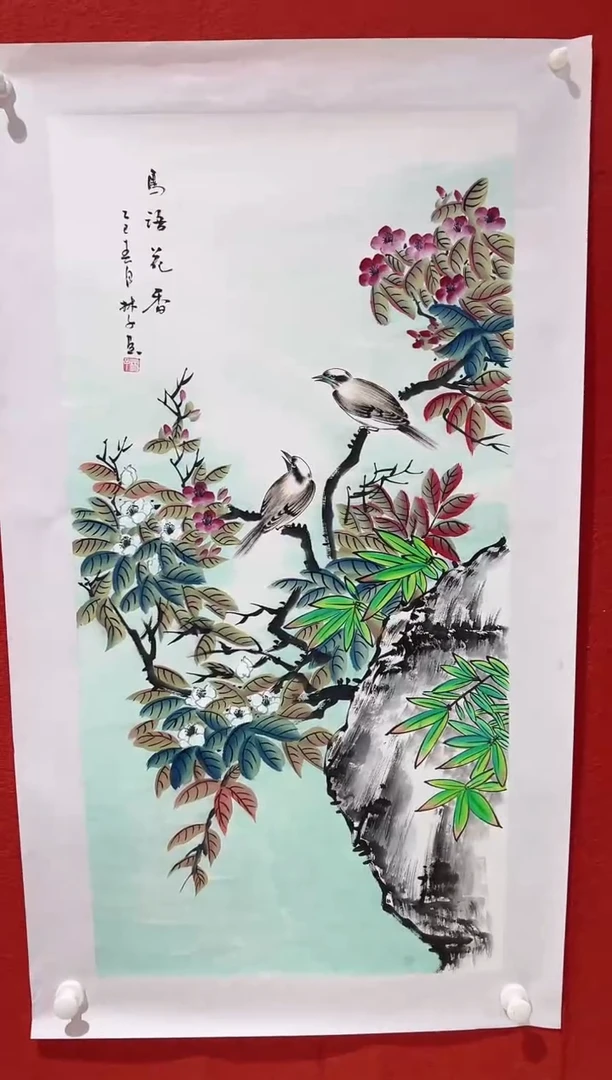 鳥語花香
乙巳春月林